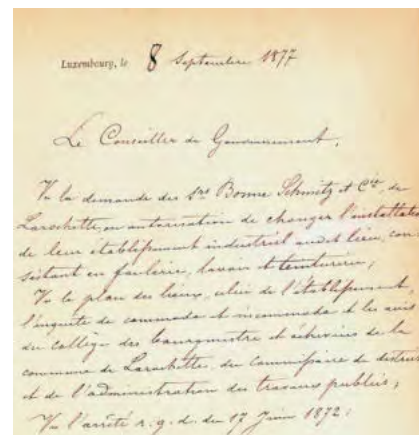 Luxembourg, le 8 Septembre 1877
Le Conseiller de Gouvernement,
Vu la demande des Srs Bonne Schmitz et Cie, de
Larochette, en autorisation de changer l'installation
de leur établissement industriel audit lieu, con-
sistant en foulerie, lavoir et teinturerie;
Vu le plan des lieux, celui de l'établissement,
l'enquête de commodo et incommodo et les avis
du collège des bourgmestre et échevins de la
commune de Larochette, du commissaire de district
et de l'administration des travaux publics;
Vu l'arrêté r. g. d. du 17 Juin 1872;